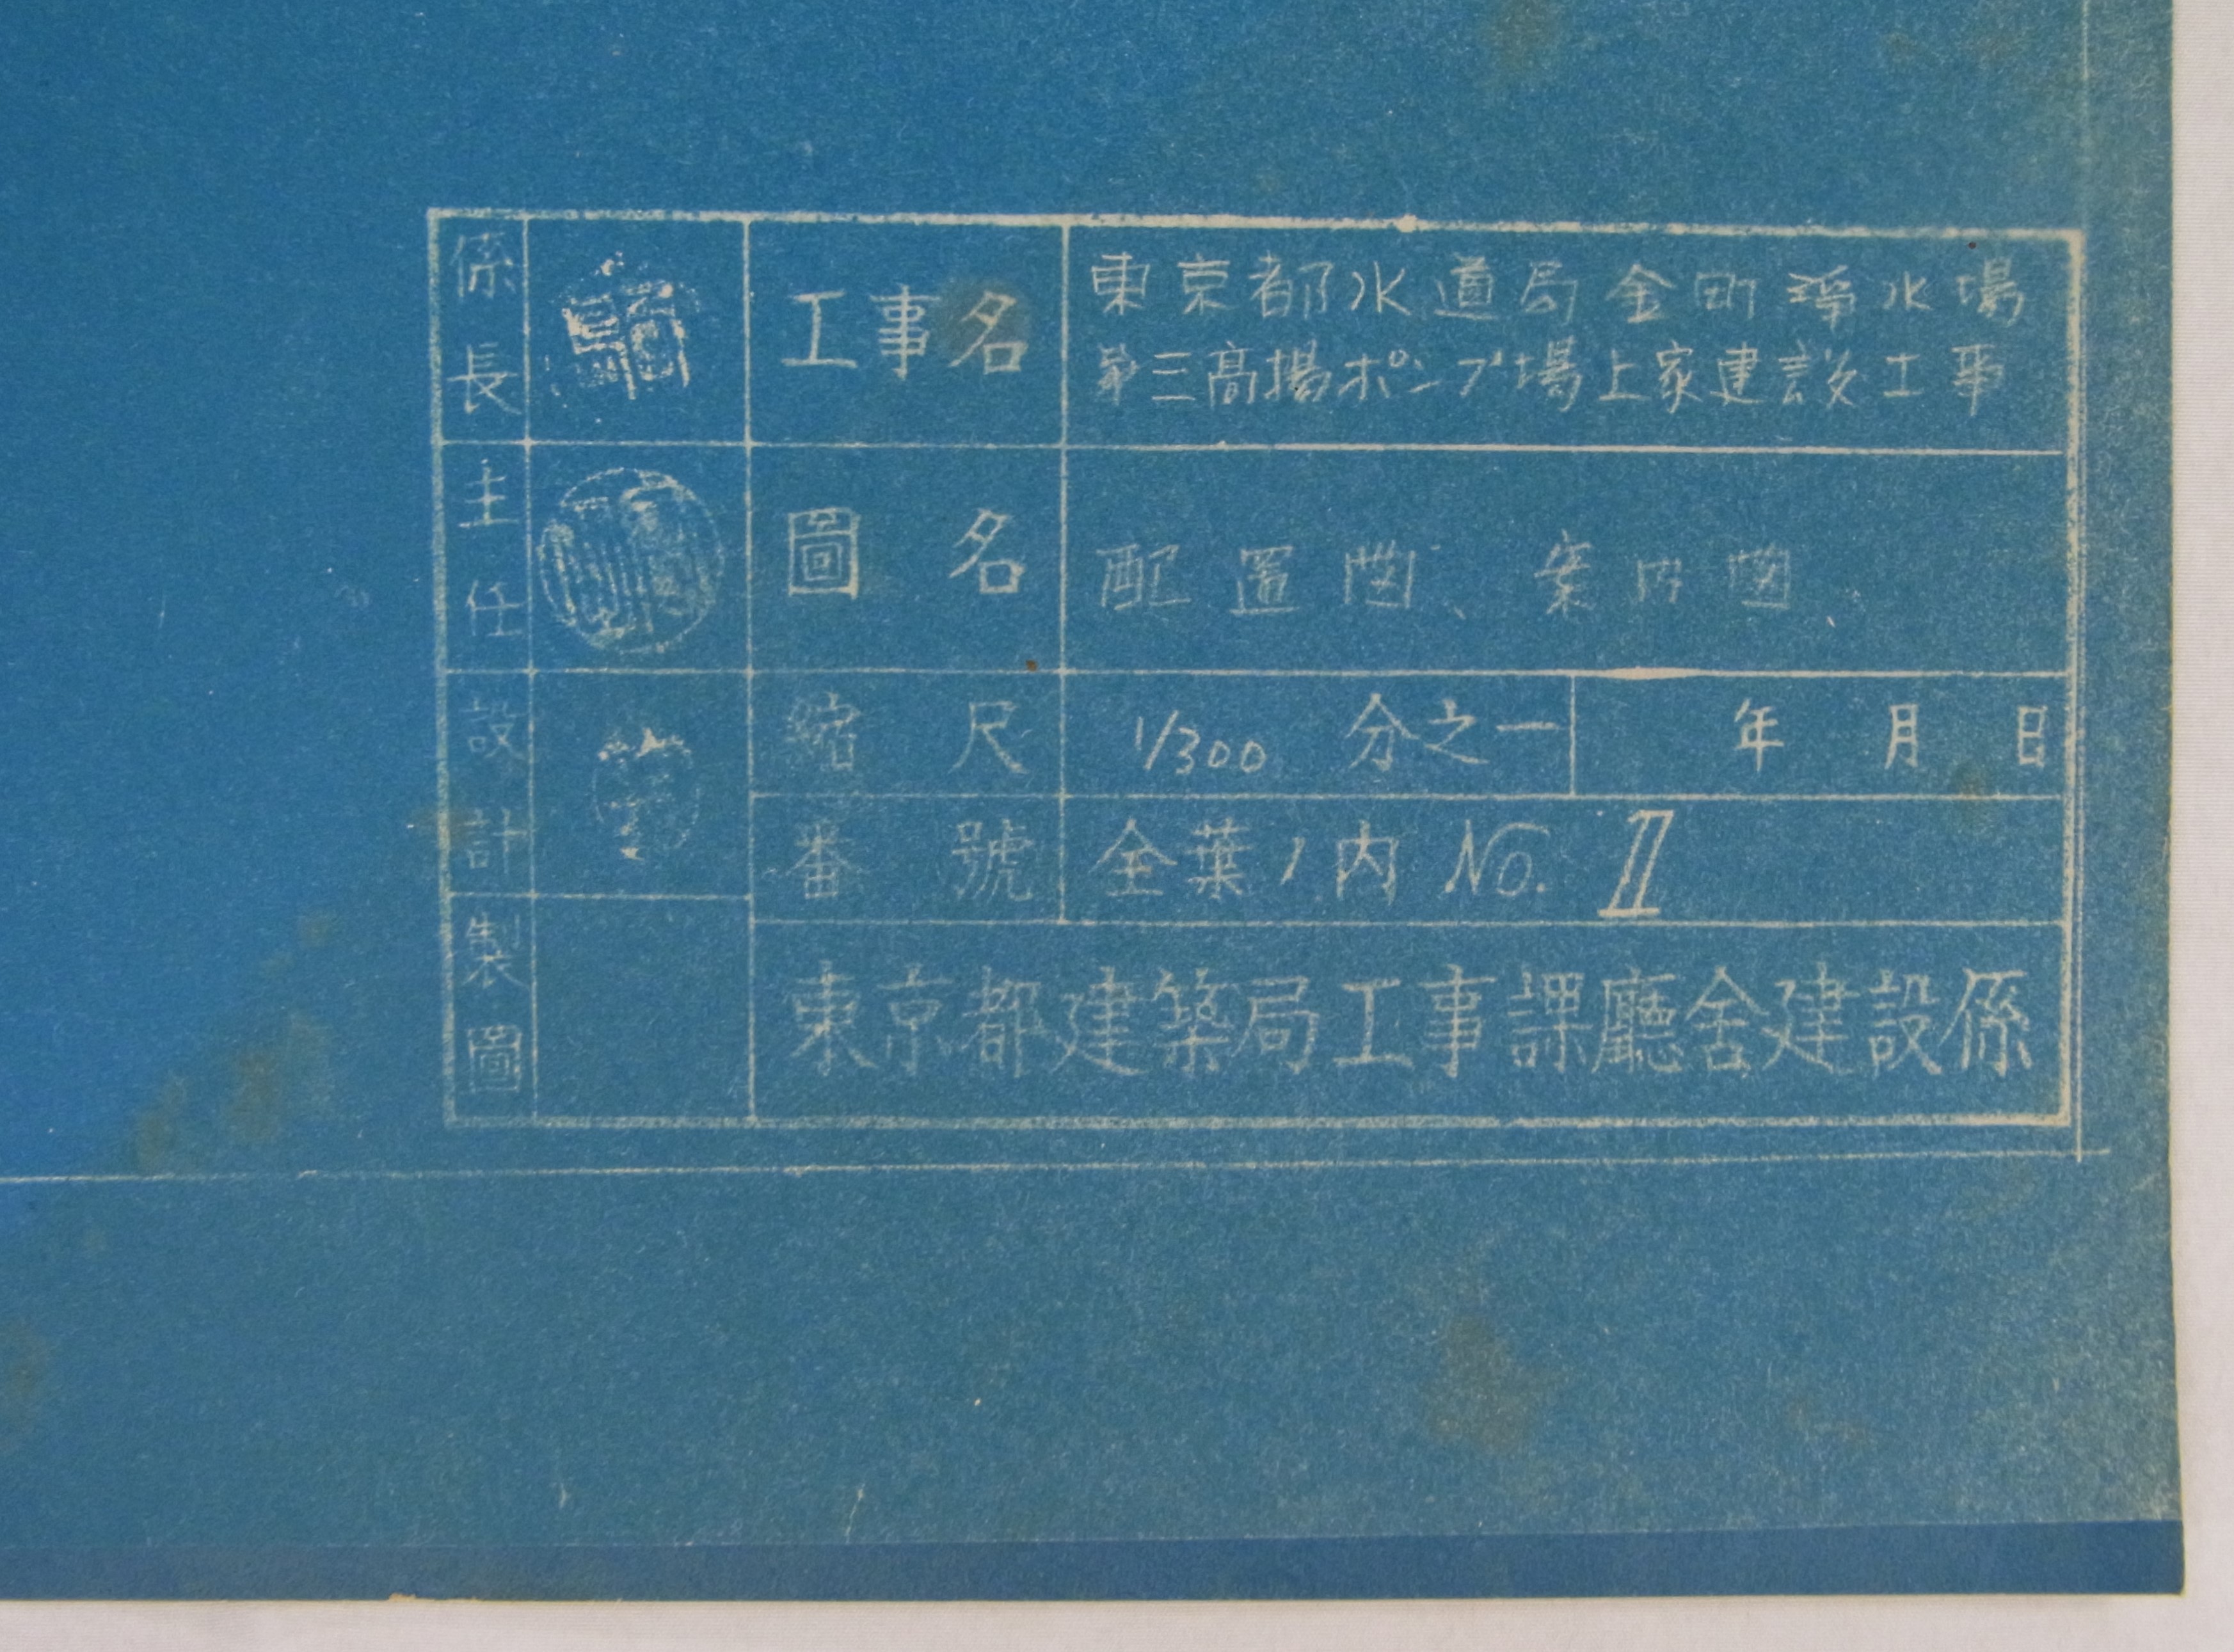 係長
工事名
東京都水道局金町浄水場
第三高揚ポンプ場上家建設工事
主任
圖名
配置図、案内図、
設計
縮尺
1/300 分之一
年 月 日
番號
全葉ノ内 NO. II
製圖
東京都建築局工事課廳舍建設係